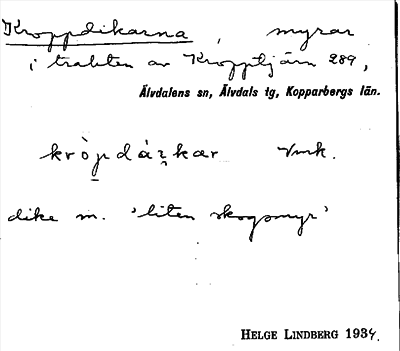 Kroppdikarna, myrar
i trakten av Kropptjärn 289,
Älvdalens sn, Älvdals tg, Kopparbergs län.
kròpdáɀ̣kær Vmk.
dike m. 'liten skogsmyr'
HELGE LINDBERG 1934.